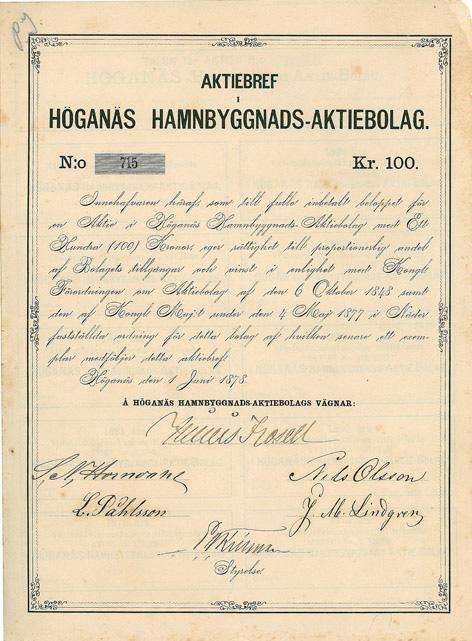 AKTIEBREF
I
HÖGANÄS HAMNBYGGNADS-AKTIEBOLAG.
N:o 715 Kr. 100.
Innehafvaren häraf, som till fullo inbetalt beloppet för
en Aktie i Höganäs Hamnbyggnads-Aktiebolag med Ett
Hundra (100) Kronor, eger rättighet till proportionerlig andel
af Bolagets tillgångar och vinst i enlighet med Kongl
Förordningen om Aktiebolag af den 6 Oktober 1848 samt
den af Kongl Maj:t under den 4 Maj 1877 i Nåder
fastställda ordning för detta bolag af hvilken senare ett exem-
plar medföljer detta aktiebref.
Höganäs den 1 Juni 1878.
Å HÖGANÄS HAMNBYGGNADS-AKTIEBOLAGS VÄGNAR:
Nils Olsson
L. Påhlsson J. M. Lindgren
Styrelse.